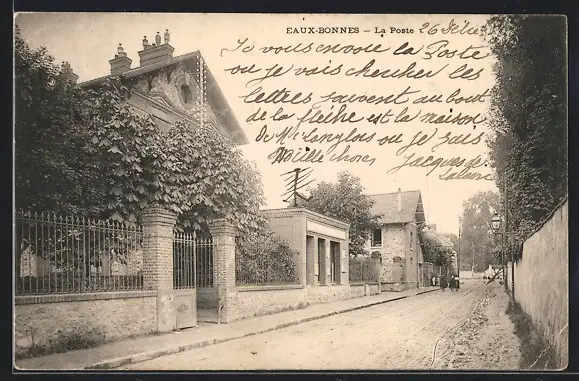 EAUX-BONNES — La Poste 26 Déc
Je vous envoie la Poste
ou je vais chercher les
lettres souvent au bout
de la flèche est la maison
de Mr Langlois ou je suis
Mille choses
Jacques de